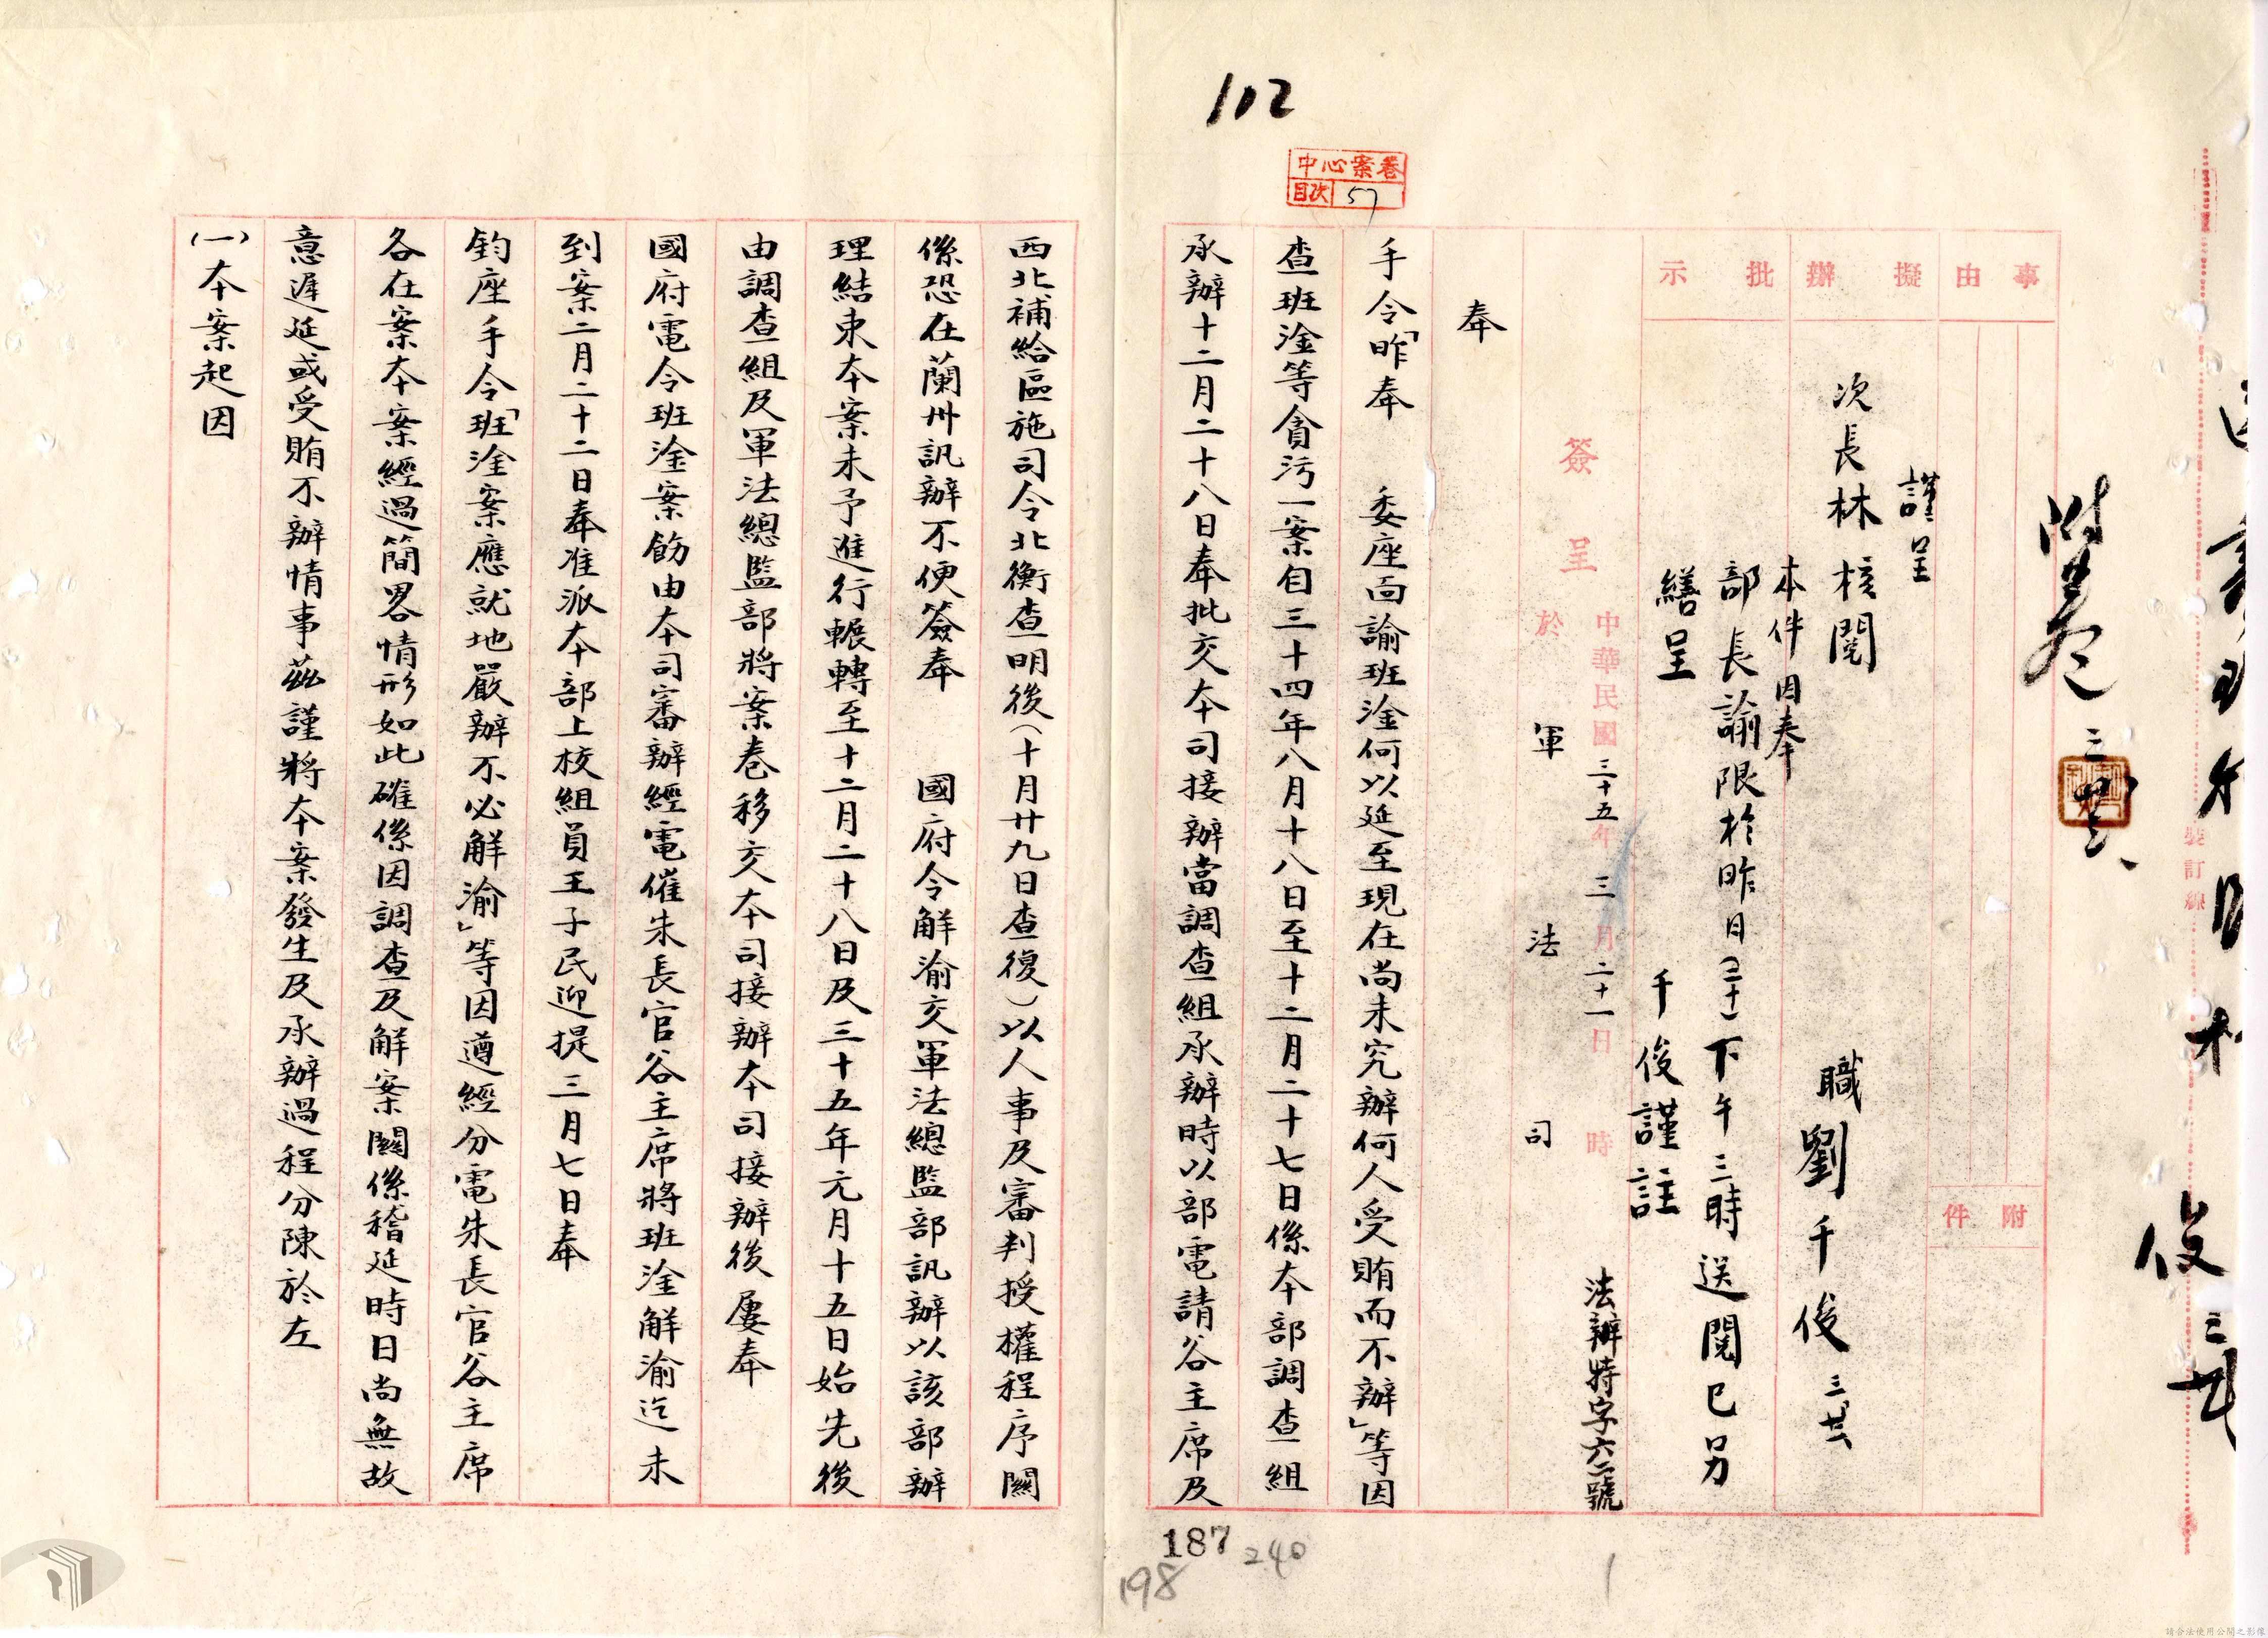 102
中心案卷
目次 57
事由
擬辦
批示
附件
附卷
裝訂線
謹呈
次長林 核閱
職劉千俊
本件因奉
部長諭限於昨日(二十)下午三時送閱已另
繕呈
千俊謹註
簽呈
中華民國三十五年三月二十一日 時
於軍法司
法辦特字六一號
奉
手令「昨奉 委座面諭班淦何以延至現在尚未究辦何人受賄而不辦」等因
查班淦等貪污一案自三十四年八月十八日至十二月二十七日係本部調查組
承辦十二月二十八日奉批交本司接辦當調查組承辦時以部電請谷主席及
西北補給區施司令北衡查明後(十月廿九日查復)以人事及審判授權程序關
係恐在蘭州訊辦不便簽奉 國府令解渝交軍法總監部訊辦以該部辦
理結束本案未予進行輾轉至十二月二十八日及三十五年元月十五日始先後
由調查組及軍法總監部將案卷移交本司接辦本司接辦後屢奉
國府電令班淦案飭由本司審辦經電催朱長官谷主席將班淦解渝迄未
到案二月二十二日奉准派本部上校組員王子民迎提三月七日奉
鈞座手令「班淦案應就地嚴辦不必解渝」等因遵經分電朱長官谷主席
各在案本案經過簡畧情形如此確係因調查及解案關係稽延時日尚無故
意遲延或受賄不辦情事茲謹將本案發生及承辦過程分陳於左
(一)本案起因
187
240
198
請合法使用公開之影像